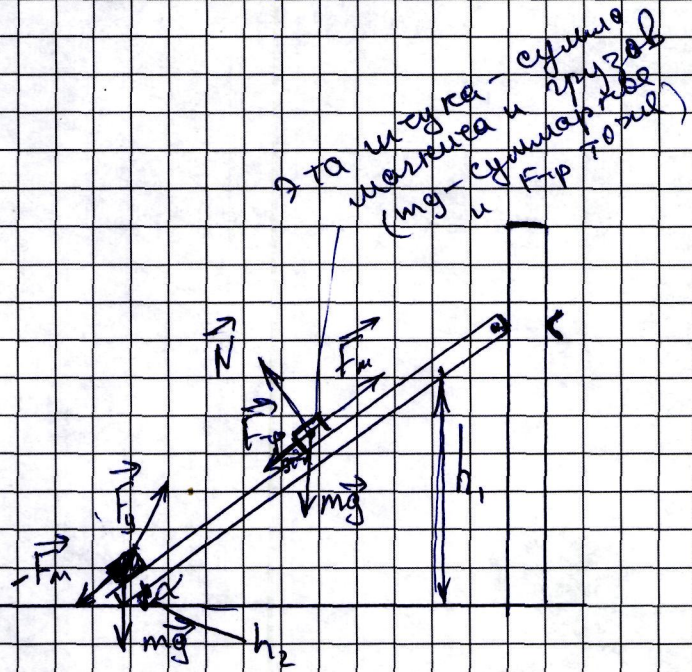 Эта штука - сумма
маятника и грузов
(mg - суммарное
и Fтр тоже)
N
Fм
Fтр
mg
h₁
Fу
-Fм
α
mg
h₂